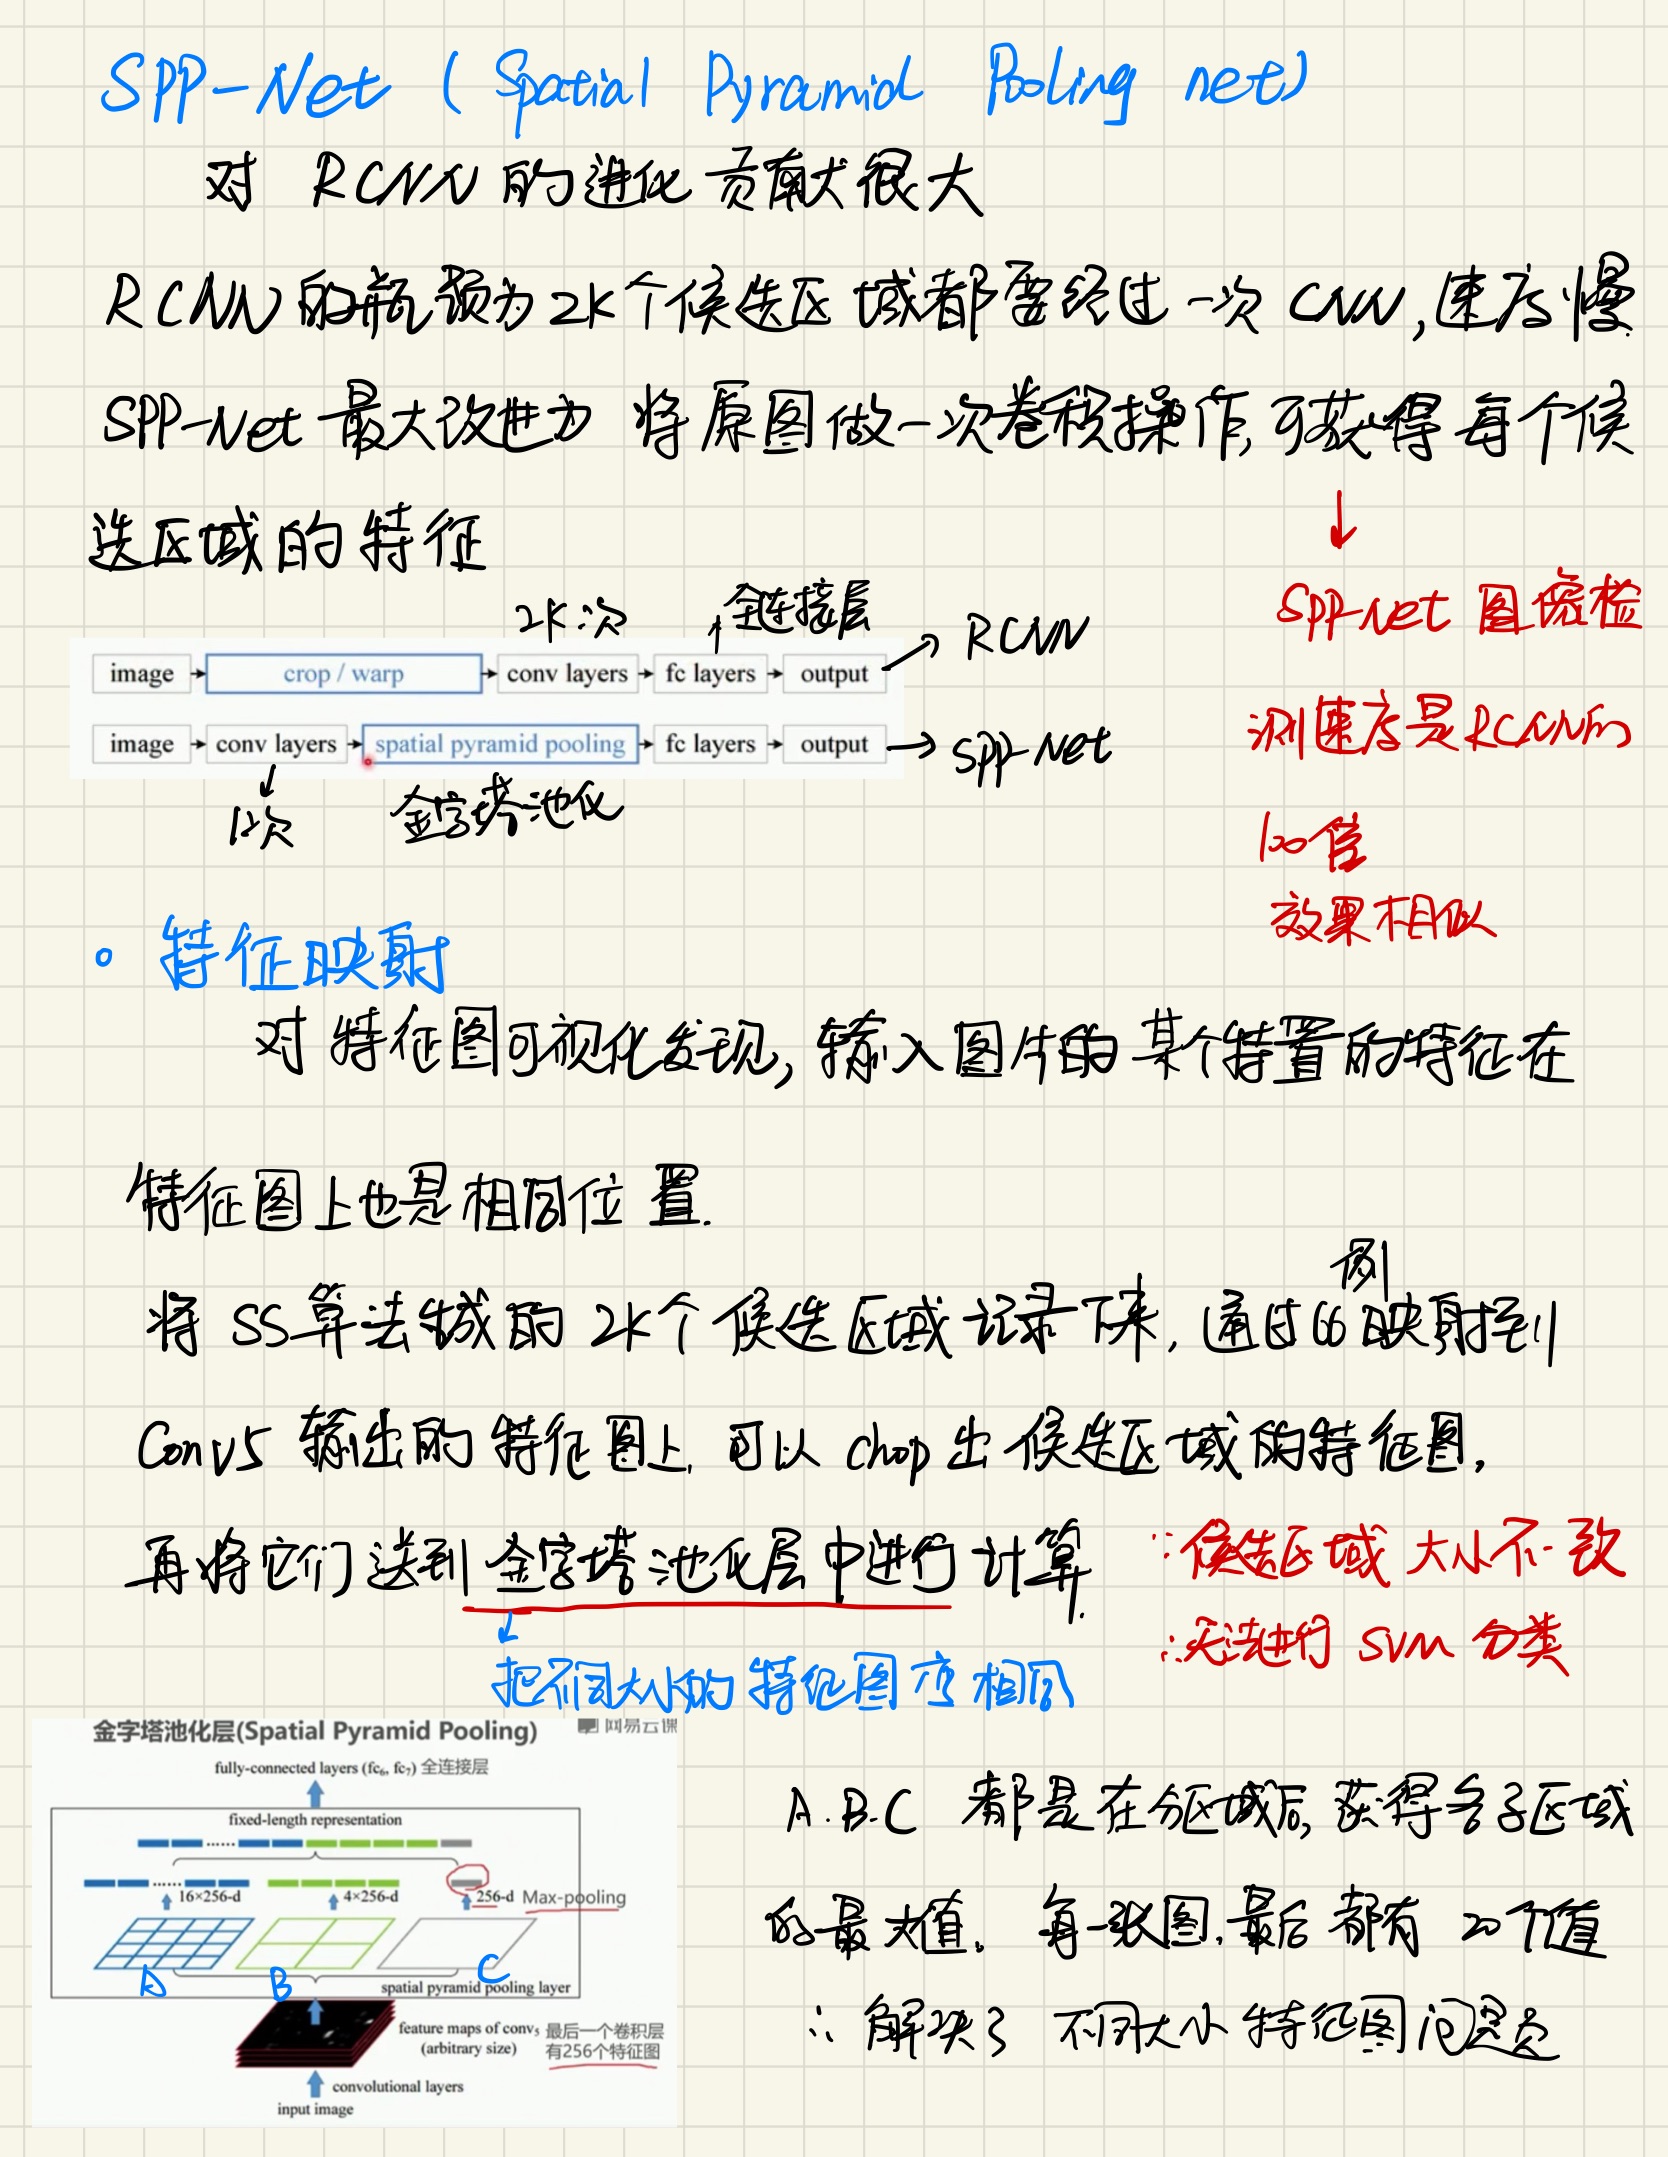 SPP-Net ( Spatial Pyramid Pooling net)
对 RCNN 的进化贡献很大
RCNN 的瓶颈为2K个候选区域都要经过一次 CNN,速度慢.
SPP-Net 最大改进为 将原图做一次卷积操作,可获得每个候
选区域的特征
↓
SPP-Net 图像检
测速度是RCNN的
100倍
效果相似
2K次 全连接层
image crop / warp conv layers fc layers output → RCNN
image conv layers spatial pyramid pooling fc layers output → SPP-Net
1次 金字塔池化
。特征映射
对特征图可视化发现,输入图片的某个特置的特征在
特征图上也是相同位置.
将 SS算法生成的 2K个候选区域记录下来,通过 映射到
例
Conv5 输出的特征图上,可以 chop 出候选区域的特征图,
再将它们送到金字塔池化层中进行计算.
∵候选区域大小不一致
∴无法进行 SVM 分类
把不同大小的特征图变相同
金字塔池化层(Spatial Pyramid Pooling) 网易云课
fully-connected layers (fc₆, fc₇) 全连接层
fixed-length representation
......
......
16×256-d 4×256-d 256-d Max-pooling
A B C
spatial pyramid pooling layer
feature maps of conv₅ 最后一个卷积层
(arbitrary size) 有256个特征图
convolutional layers
input image
A.B.C 都是在分区域后,获得各子区域
的最大值. 每一张图,最后都有 20个值
∴ 解决了 不同大小特征图问题